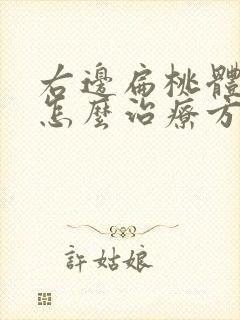 右邊扁桃體
怎麼治療方
許姑娘